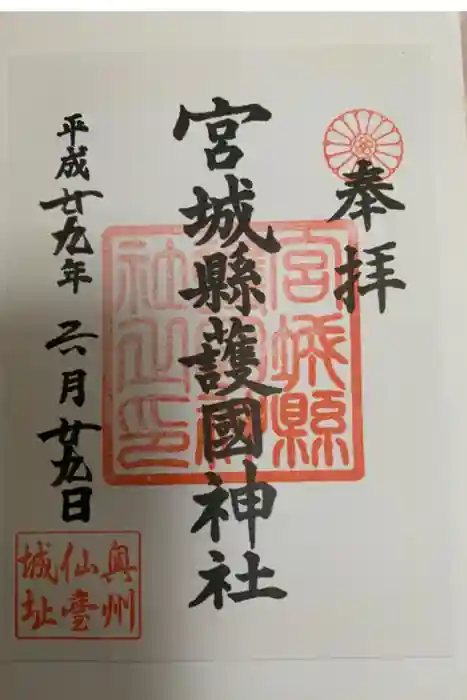 奉拝
宮城縣護國神社
宮城縣
護國神
社之印
平成廿九年 六月廿九日
奥州
仙臺
城址